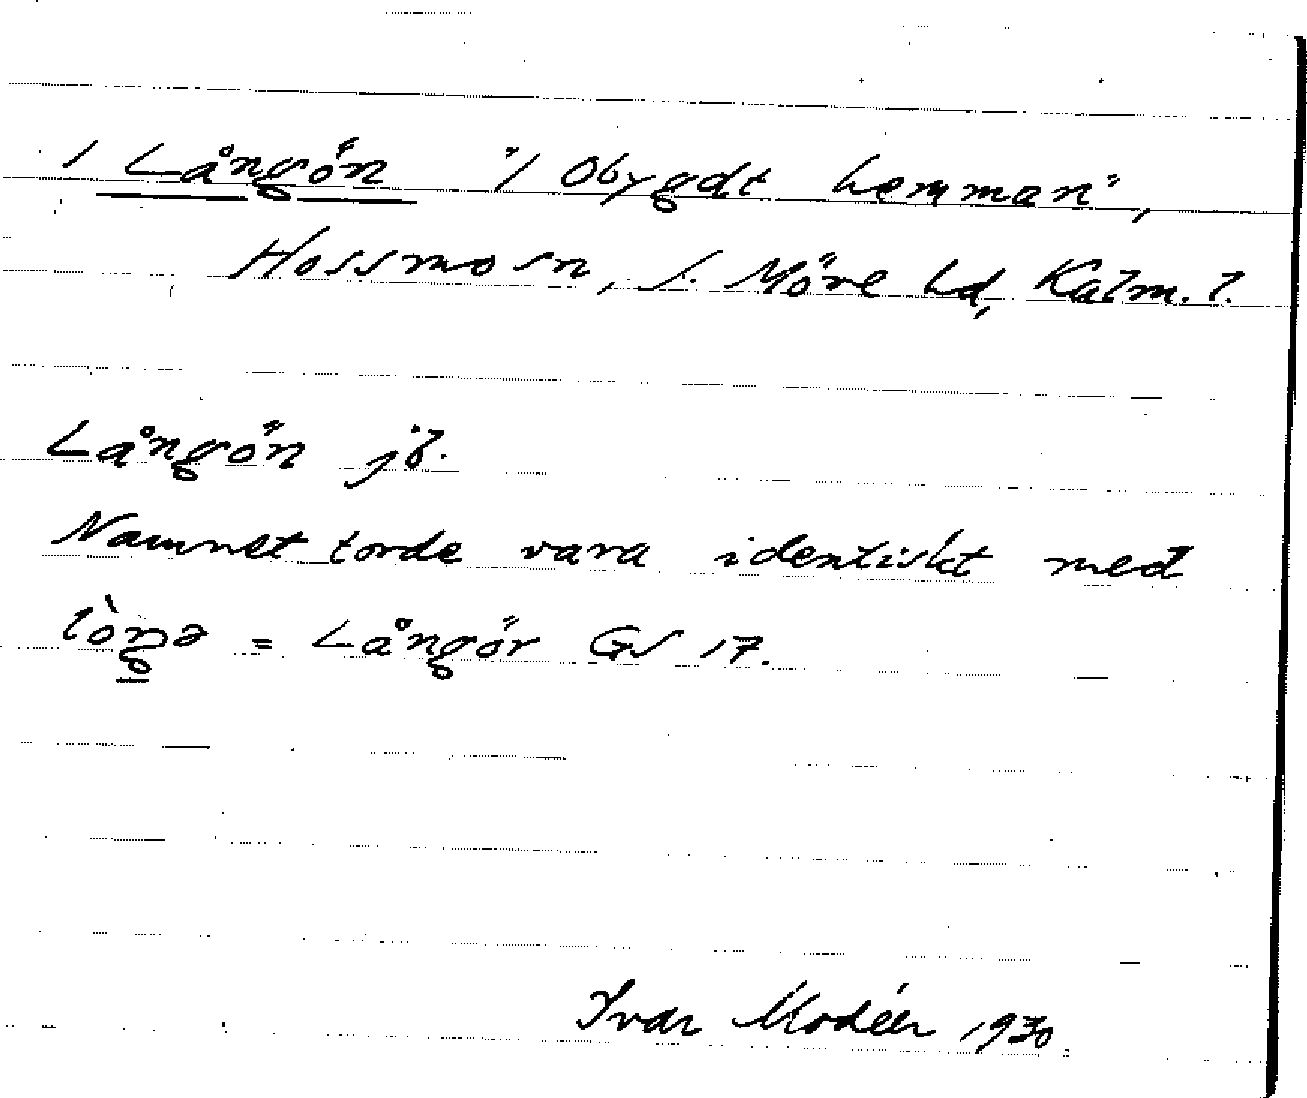 / Långön "/ Obygdt hemman",
Hossmo sn, S. Möre hd, Kalm. l.
Långön jb.
Namnet torde vara identiskt med
lòŋə = Långör GS 17.
Ivar Modéer 1930